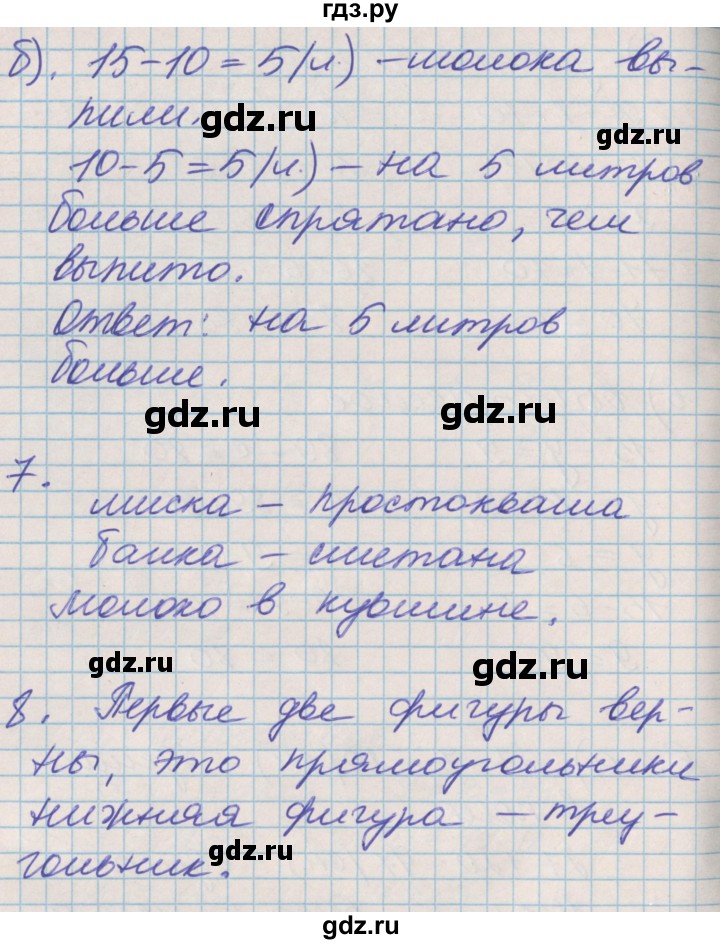 гдз.ру
б). 15-10=5(л.) – молока вы-
пили.
gdz.ru
gdz.ru
10-5=5(л.) – на 5 литров
больше спрятано, чем
выпито.
Ответ: на 5 литров
больше.
gdz.ru
gdz.ru
7.
миска – простокваша
банка – сметана
молоко в кувшине.
gdz.ru
gdz.ru
8. Первые две фигуры вер-
ны, это прямоугольники
нижняя фигура – треу-
гольник.
gdz.ru
gdz.ru